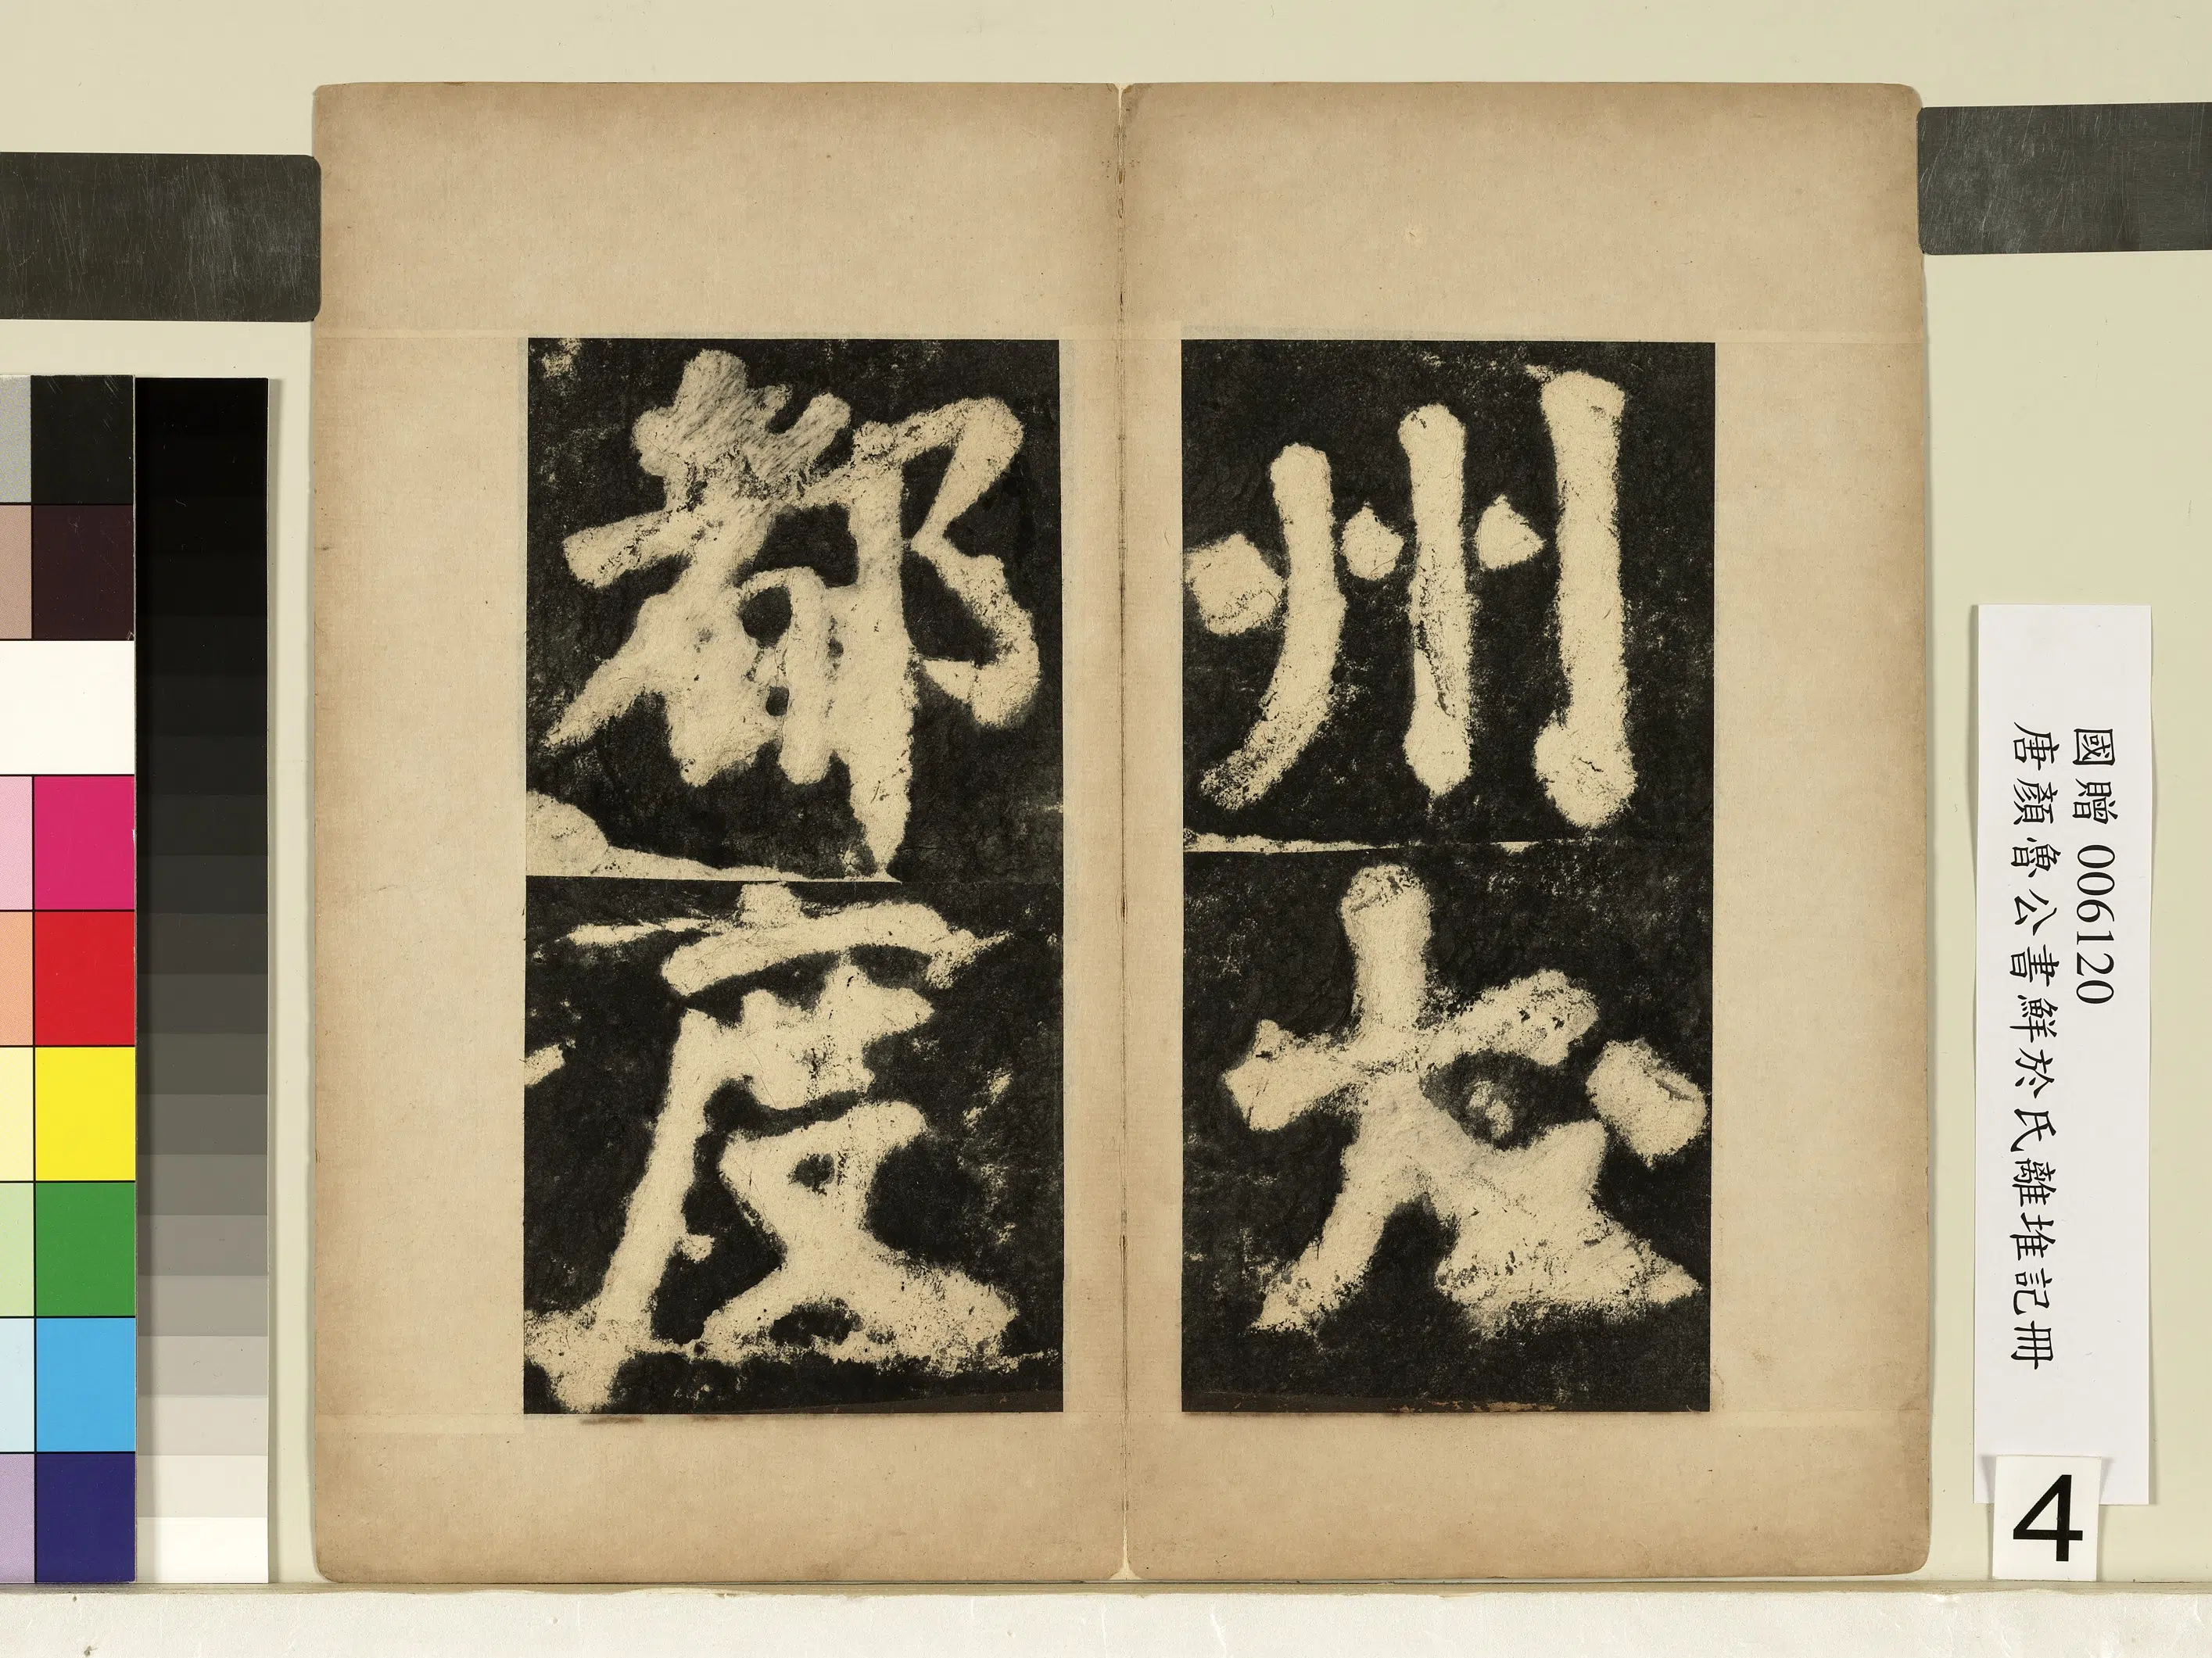 國贈 006120
唐顏魯公書鮮於氏離堆記冊
4
州大
都度